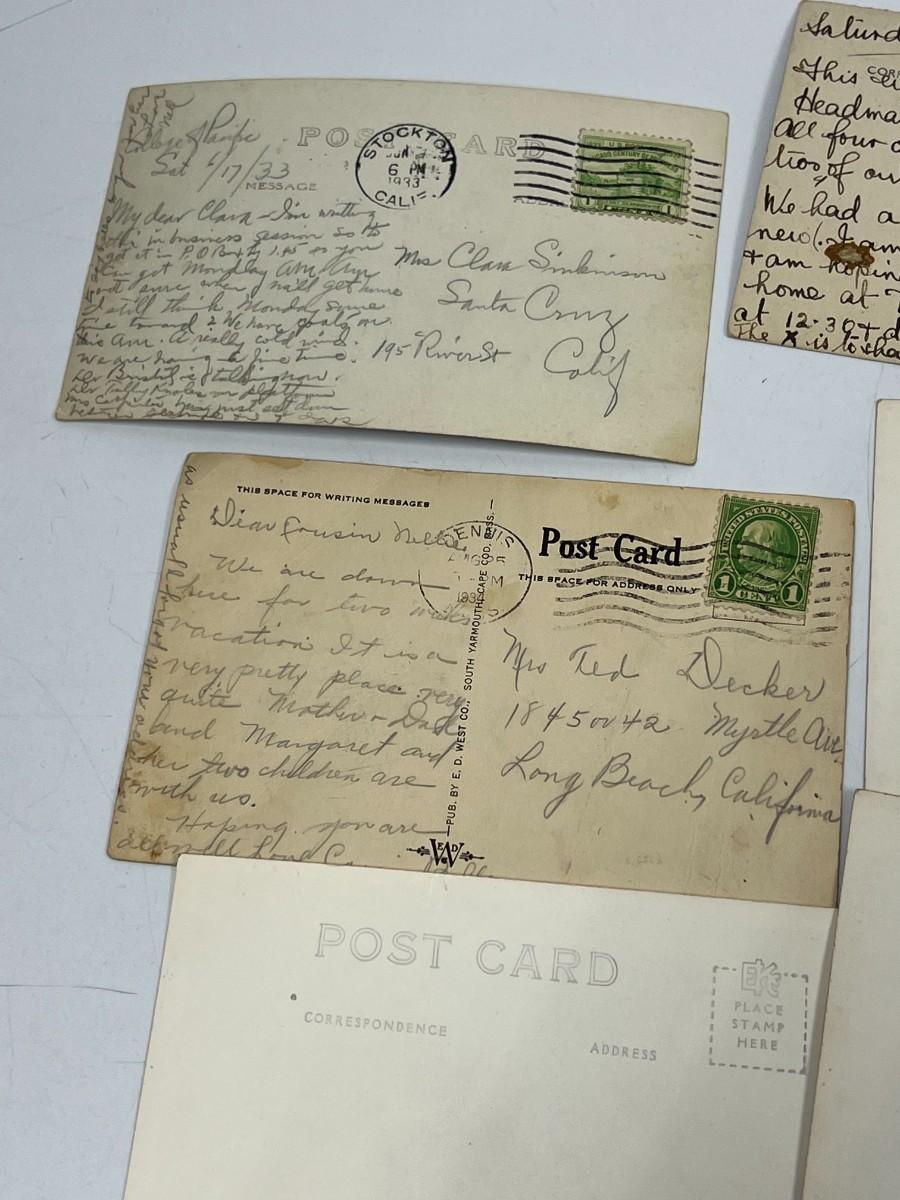 College of Pacific
Sat 6/17/33
POST CARD
MESSAGE
STOCKTON
6 PM
1933
CALIF.
My dear Clara - I'm writing
this in business session so to
get it in P.O. Box by 1:45 so you
can get Monday Am. Am
not sure when I'll get home
I still think Monday some
time toward
this Am. A really cold wind.
we are having a fine time.
Dr Bristol is talking now.
Dr Tully Knoles on platform
Mrs just sat down
Mrs Clara Sinkinson
Santa Cruz
195 River St
Calif
Saturd
This
COR
Headma
all four
ties of ou
We had a
new
+ am hopin
home at 7
at 12-30 + d
The X is to sho
THIS SPACE FOR WRITING MESSAGES
Dear Cousin Nellie,
We are down
here for two weeks
vacation. It is a
very pretty place very
quite Mother + Dad
and Margaret and
her two children are
with us.
Hoping you are
all well Love
as usual I forgot your address.
PUB. BY E. D. WEST CO., SOUTH YARMOUTH, CAPE COD, MASS.
DENNIS
AUG 25
M
Post Card
THIS SPACE FOR ADDRESS ONLY
UNITED STATES POSTAGE
1 CENT 1
Mrs Ted Decker
1845 or 42 Myrtle Ave.
Long Beach, California
E W D
Co
POST CARD
CORRESPONDENCE
ADDRESS
EKC
PLACE
STAMP
HERE